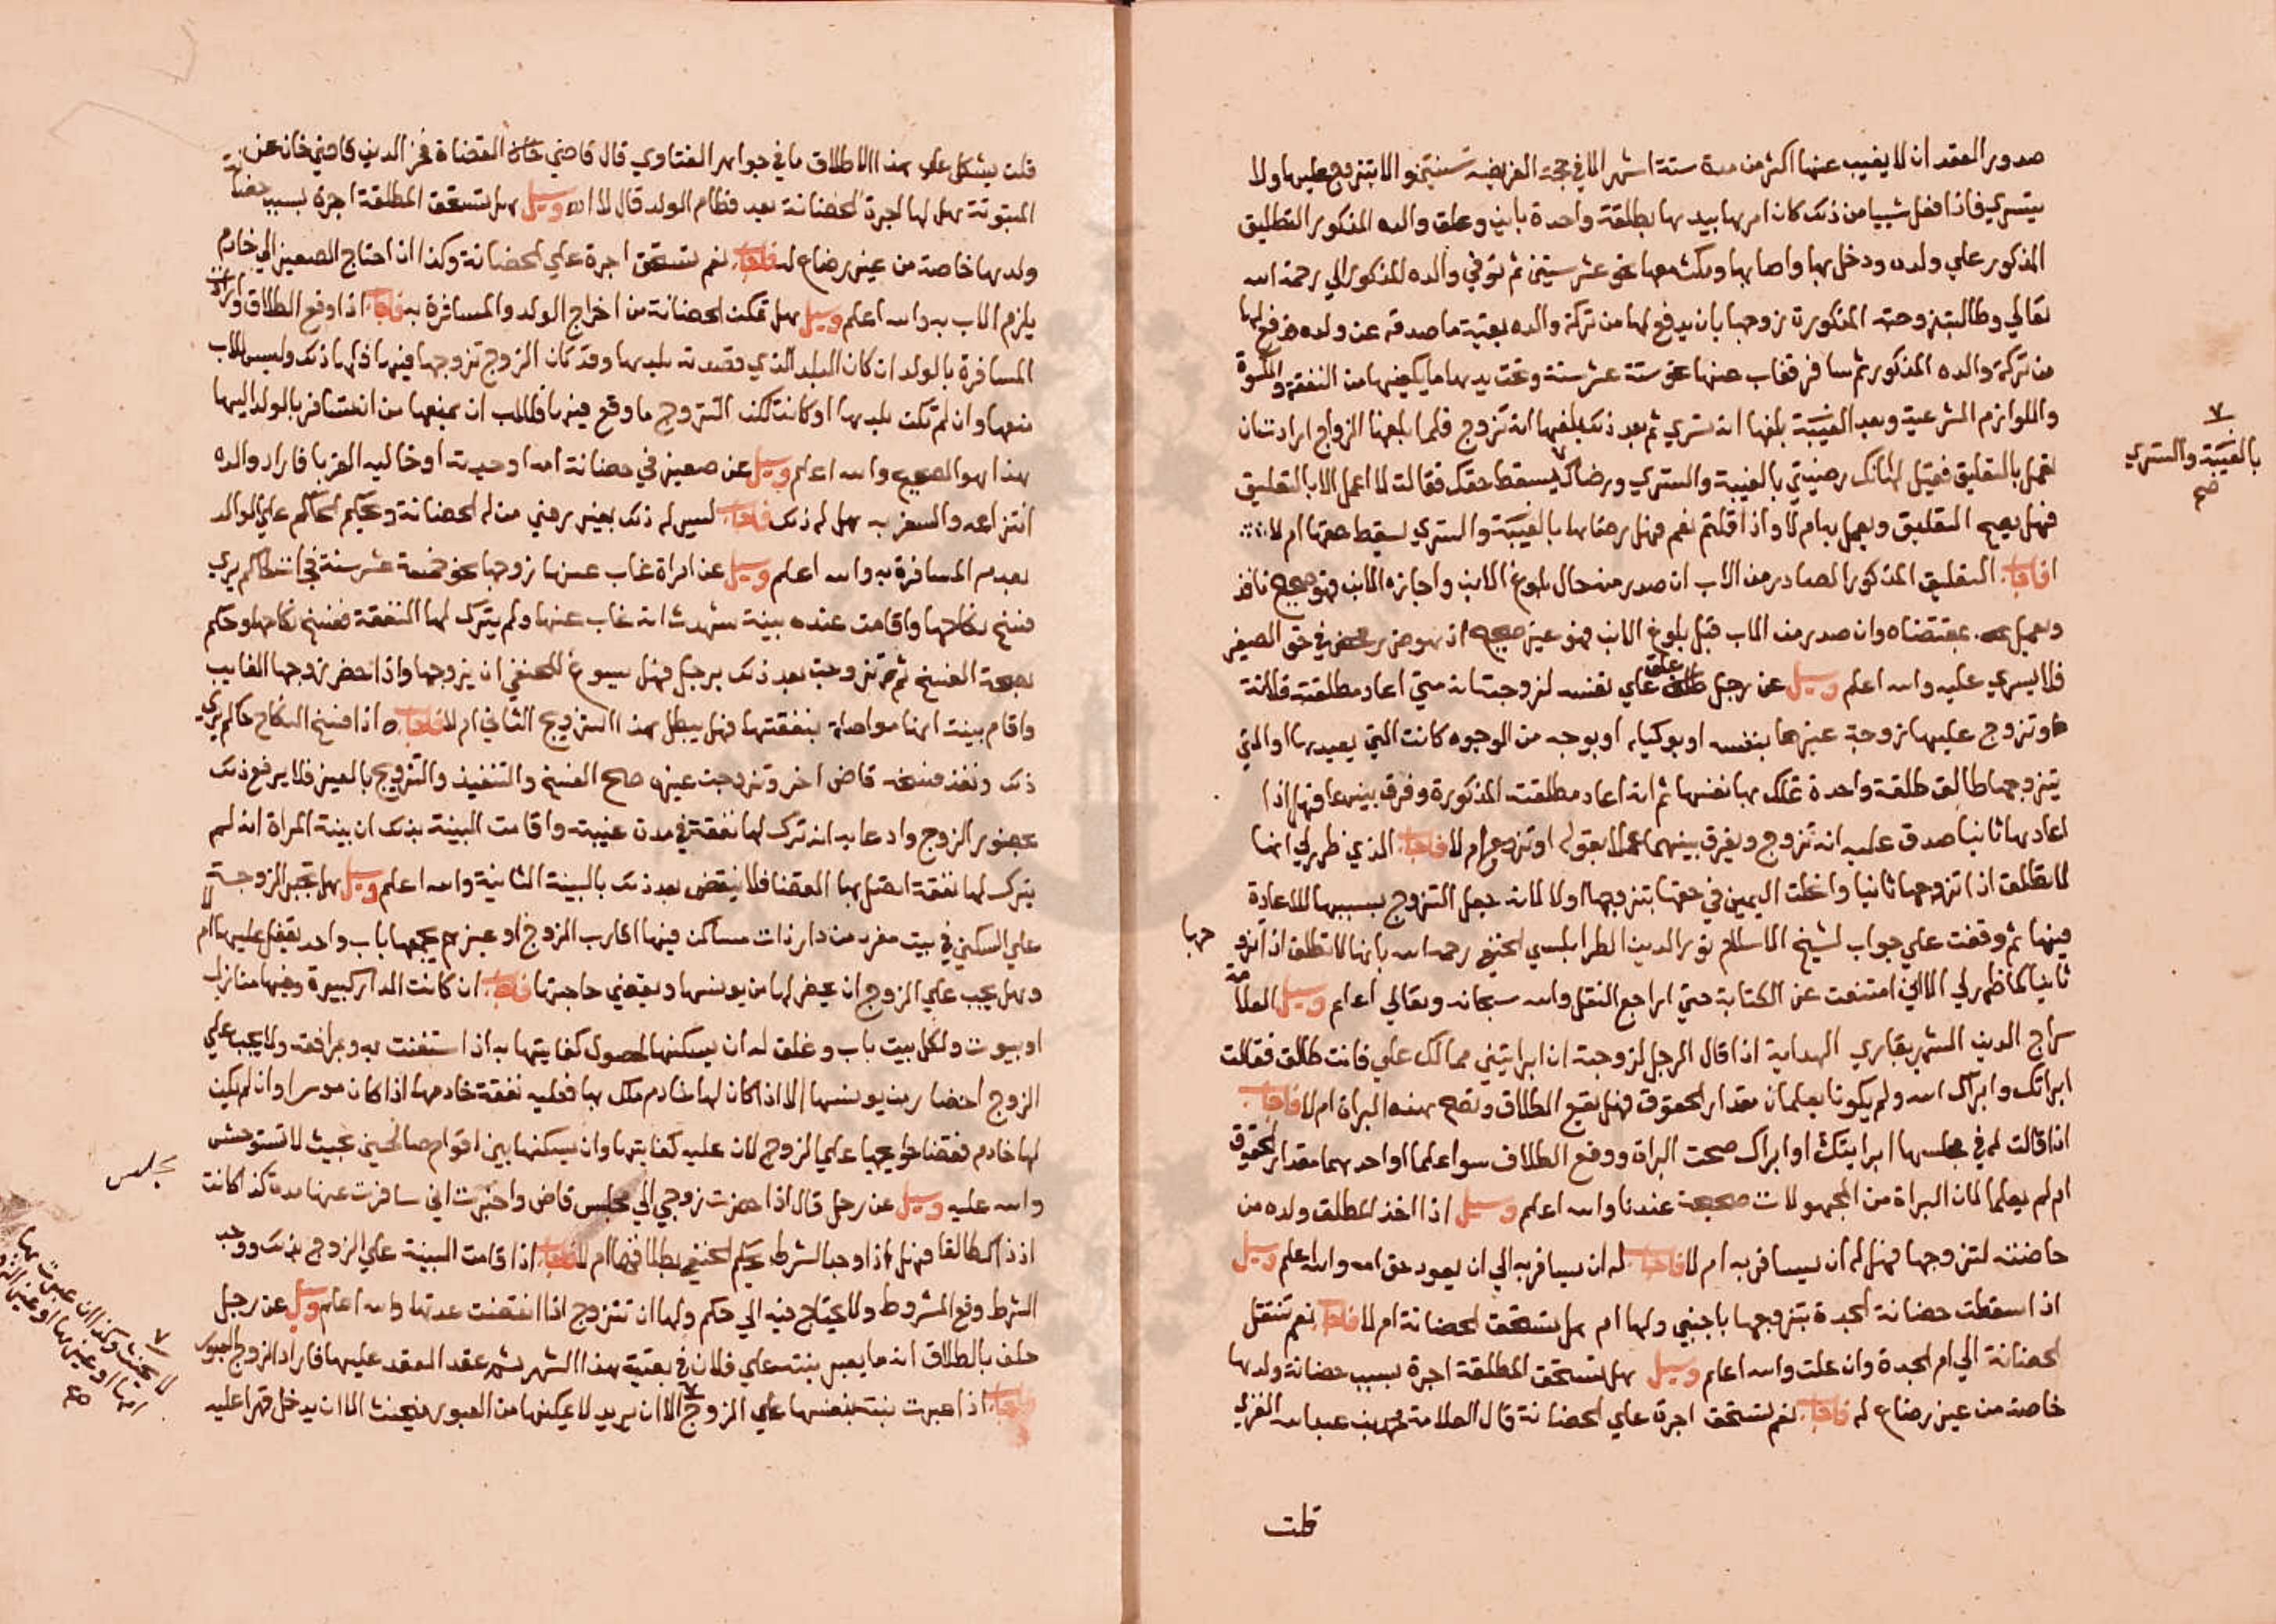 صدور العقد ان لا يغيب عنها اكثر من مدة ستة اشهر الا في حجة الفريضة سنتين والا يتزوج عليها ولا
يتسري فاذا فعل شيا من ذلك كان امرها بيدها بطلقة واحدة باين وعلق والده المذكور التعليق
المذكور علي ولده ودخل بها واصابها ومكث معها نحو عشر سنين ثم توفي والده المذكور الي رحمة الله
تعالي وطالبت زوجته المذكورة زوجها بان يدفع لها من تركة والده بقية ما صدقه عن ولده فدفع لها
من تركة والده المذكور ثم سافر فغاب عنها نحو ستة عشر سنة وتحت يدها ما يكفيها من النفقة والكسوة
واللوازم الشرعية وبعد الغيبة بلغها انه تسري ثم بعد ذلك بلغها انه تزوج فلما بلغها الزواج ارادت ان
تعمل بالتعليق فقيل لها انك رضيتي بالغيبة والتسري ورضاك يسقط حقك فقالت لا اعمل الا بالتعليق
بالغيبة والتسري
صح
فهل يصح التعليق ويعمل به ام لا واذا قلتم نعم فهل رضاها بالغيبة والتسري يسقط حقها ام لا
اجاب التعليق المذكور الصادر من الاب ان صدر منه حال بلوغ الابن واجازه الابن فهو صحيح نافذ
ويعمل بمقتضاه وان صدر من الاب قبل بلوغ الابن فهو غير صحيح اذ هو ضرر محض في حق الصغير
فلا يسري عليه والله اعلم وسيل عن رجل علق علي نفسه لزوجته انه متي اعاد مطلقته فلانة
او تزوج عليها زوجة غيرها بنفسه او بوكيله او بوجه من الوجوه كانت التي يعيدها او التي
يتزوجها طالق طلقة واحدة تملك بها نفسها ثم انه اعاد مطلقته المذكورة وفرق بينهما فهل اذا
اعادها ثانيا صدق عليه انه تزوج ويفرق بينهما عملا بقوله او تزوج ام لا فاجاب الذي ظهر لي انها
لا تطلق اذا تزوجها ثانيا وانحلت اليمين في حقها بتزوجها اولا لانه جعل التزوج بسببها للاعادة
فيها ثم وقفت علي جواب لشيخ الاسلام نور الدين الطرابلسي الحنفي رحمه الله بانها لا تطلق اذا تزو جها
ثانيا كما ظهر لي الا اني امتنعت عن الكتابة حتي اراجع النقل والله سبحانه وتعالي اعلم وسيل العلامة
سراج الدين الشهير بقاري الهداية اذا قال الرجل لزوجته ان ابرايتني مما لك علي فانت طالق فقالت
ابراتك وابراك الله ولم يكونا يعلمان مقدار الحقوق فهل يقع الطلاق وتصح هذه البراة ام لا فاجاب
اذا قالت له في مجلسها ابرايتك او ابراك صحت البراة ووقع الطلاق سوا علما او احدهما مقدار الحقوق
ام لم يعلما لان البراة من المجهولات صحيحة عندنا والله اعلم وسيل اذا اخذ المطلق ولده من
حاضنته لتزوجها فهل له ان يسافر به ام لا فاجاب له ان يسافر به الي ان يعود حق امه والله اعلم وسيل
اذا سقطت حضانة الجدة بتزوجها باجنبي ولها ام هل تستحق الحضانة ام لا فاجاب نعم تنتقل
الحضانة الي ام الجدة وان علت والله اعلم وسيل هل تستحق المطلقة اجرة بسبب حضانة ولدها
خاصة من غير رضاع له فاجاب نعم تستحق اجرة علي الحضانة قال العلامة محمد بن عبد الله الغزي
قلت
قلت يشكل علي هذا الاطلاق ما في جواهر الفتاوي قال قاضي القضاة فخر الدين قاضي خان عن
المبتوتة هل لها اجرة الحضانة بعد فطام الولد قال لا اه وسيل هل تستحق المطلقة اجرة بسبب حضانة
ولدها خاصة من غير رضاع له فاجاب نعم تستحق اجرة علي الحضانة وكذا ان احتاج الصغير الي خادم
يلزم الاب به والله اعلم وسيل هل تمكن الحضانة من اخراج الولد والمسافرة به فاجاب اذا وقع الطلاق وارادت
المسافرة بالولد ان كان البلد الذي قصدته بلدها وقد كان الزوج تزوجها فيها فلها ذلك وليس للاب
منعها وان لم تكن بلدها او كانت لكن التزوج ما وقع فيها فللاب ان يمنعها من ان تسافر بالولد اليها
هذا هو الصحيح والله اعلم وسيل عن صغير في حضانة امه او جدته او خالته الغربا فاراد والده
انتزاعه والسفر به هل له ذلك فاجاب ليس له ذلك بغير رضي من له الحضانة ويحكم الحاكم علي الوالد
بعدم المسافرة به والله اعلم وسيل عن امراة غاب عنها زوجها نحو خمسة عشر سنة فجات لحاكم يري
فسخ نكاحها واقامت عنده بينة شهدت انه غاب عنها ولم يترك لها النفقة ففسخ نكاحها وحكم
بصحة الفسخ ثم تزوجت بعد ذلك برجل فهل يسوغ للحنفي ان يزوجها واذا حضر زوجها الغايب
واقام بينة انها مواصلة بنفقتها فهل يبطل هذا التزويج الثاني ام لا فاجاب اذا فسخ النكاح حاكم يري
ذلك ونفذ فسخه قاض اخر وتزوجت غيره صح الفسخ والتنفيذ والتزويج بالغير فلا يرفع ذلك
بحضور الزوج وادعايه انه ترك لها نفقة في مدة غيبته واقامت البينة بذلك ان بينة المراة انه لم
يترك لها نفقة اتصل بها القضا فلا ينقض بعد ذلك بالبينة الثانية والله اعلم وسيل هل تجبر الزوجة
علي السكني في بيت مفرد من دار ذات مساكن فيها اقارب الزوج او غيرهم يجمعها باب واحد يقفل عليها ام لا
وهل يجب علي الزوج ان يحضر لها من يونسها ويقضي حاجتها فاجاب ان كانت الدار كبيرة وفيها منازل
او بيوت ولكل بيت باب وغلق له ان يسكنها لحصول كفايتها به اذا استغنت به وبمرافقه ولا يجب علي
الزوج احضار من يونسها الا اذا كان لها خادم ملك بها فعليه نفقة خادمها اذا كان موسرا وان لم يكن
لها خادم فقضا حوايجها علي الزوج لان عليه كفايتها وان يسكنها بين اقوام صالحين بحيث لا تستوحش
والله عليه وسيل عن رجل قال اذا حضرت زوجتي الي مجلس قاض واخبرت اني سافرت عنها مدة كذا كانت
مجلس
اذ ذاك طالقا فهل اذا وجد الشرط يحكم الحنفي بطلاقها ام لا فاجاب اذا قامت البينة علي الزوج بذلك ووجد
الشرط وقع المشروط ولا يحتاج فيه الي حكم ولها ان تتزوج اذا انقضت عدتها والله اعلم وسيل عن رجل
حلف بالطلاق انه ما يعبر بنته علي فلان في بقية هذا الشهر ثم عقد العقد عليها فاراد الزوج العبور
فاجاب اذا عبرت بنته بنفسها علي الزوج الا ان يريد لا يمكنها من العبور فيحنث الا ان يدخل قهرا عليه
لا يحنث وكذا ان عبرت بها
امها او غيرها
صح